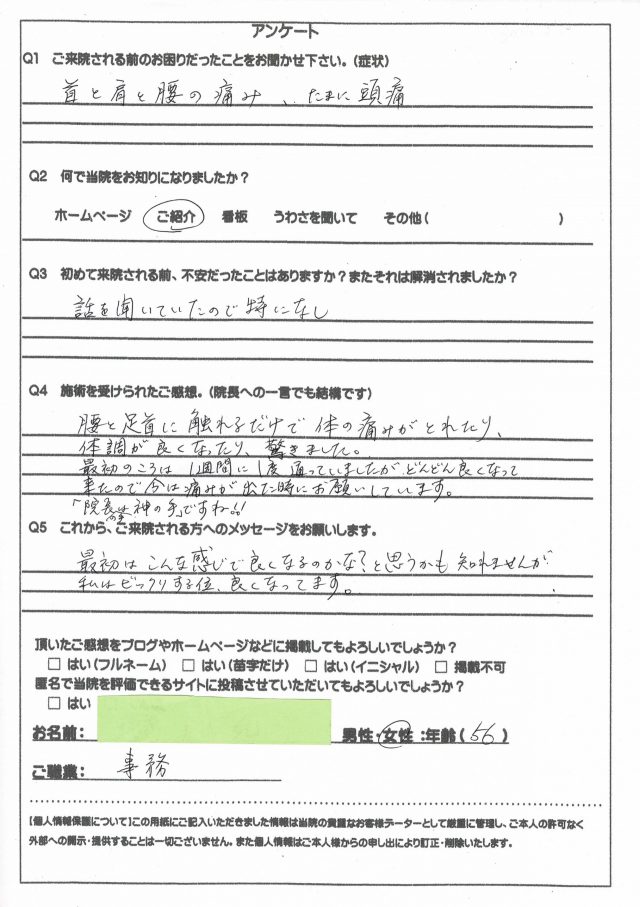 アンケート
Q1 ご来院される前のお困りだったことをお聞かせ下さい。(症状)
首と肩と腰の痛み、たまに頭痛
Q2 何で当院をお知りになりましたか?
ホームページ ご紹介 看板 うわさを聞いて その他( )
Q3 初めて来院される前、不安だったことはありますか?またそれは解消されましたか?
話を聞いていたので特になし
Q4 施術を受けられたご感想。(院長への一言でも結構です)
腰と足首に触れるだけで体の痛みがとれたり、
体調が良くなったり、驚きました。
最初のころは1週間に1度通っていましたが、どんどん良くなって
来たので今は痛みが出た時にお願いしています。
「院長の手は神の手」ですね!!
Q5 これから、ご来院される方へのメッセージをお願いします。
最初はこんな感じで良くなるのかな?と思うかも知れませんが
私はビックリする位、良くなってます。
頂いたご感想をブログやホームページなどに掲載してもよろしいでしょうか?
□ はい(フルネーム) □ はい(苗字だけ) □ はい(イニシャル) □ 掲載不可
匿名で当院を評価できるサイトに投稿させていただいてもよろしいでしょうか?
□ はい
お名前: 男性・女性:年齢(56)
ご職業: 事務
【個人情報保護について】この用紙にご記入いただきました情報は当院の貴重なお客様データーとして厳重に管理し、ご本人の許可なく
外部への開示・提供することは一切ございません。また個人情報はご本人様からの申し出により訂正・削除いたします。